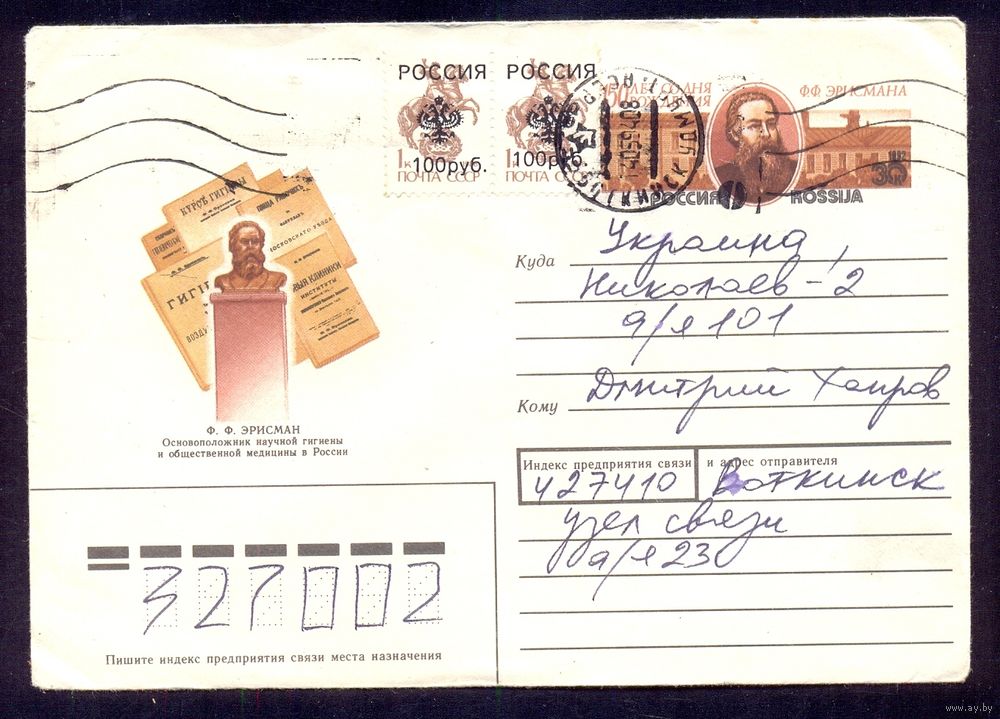 РОССИЯ
100руб.
1к
ПОЧТА СССР
РОССИЯ
100руб.
1к
ПОЧТА СССР
150 ЛЕТ СО ДНЯ РОЖДЕНИЯ
Ф.Ф. ЭРИСМАНА
РОССИЯ ROSSIJA
КУРСЪ ГИГІЕНЫ
МОСКОВСКАГО УѢЗДА
ГИГІЕ
ВОЗДУ
КЛИНИКИ
ИНСТИТУТЫ
Ф. Ф. ЭРИСМАН
Основоположник научной гигиены
и общественной медицины в России
Куда Украина,
Николаев-2
а/я 101
Кому Дмитрий Хаиров
Индекс предприятия связи и адрес отправителя
427410 Воткинск
узел связи
а/я 23
327002
Пишите индекс предприятия связи места назначения
www.ay.by